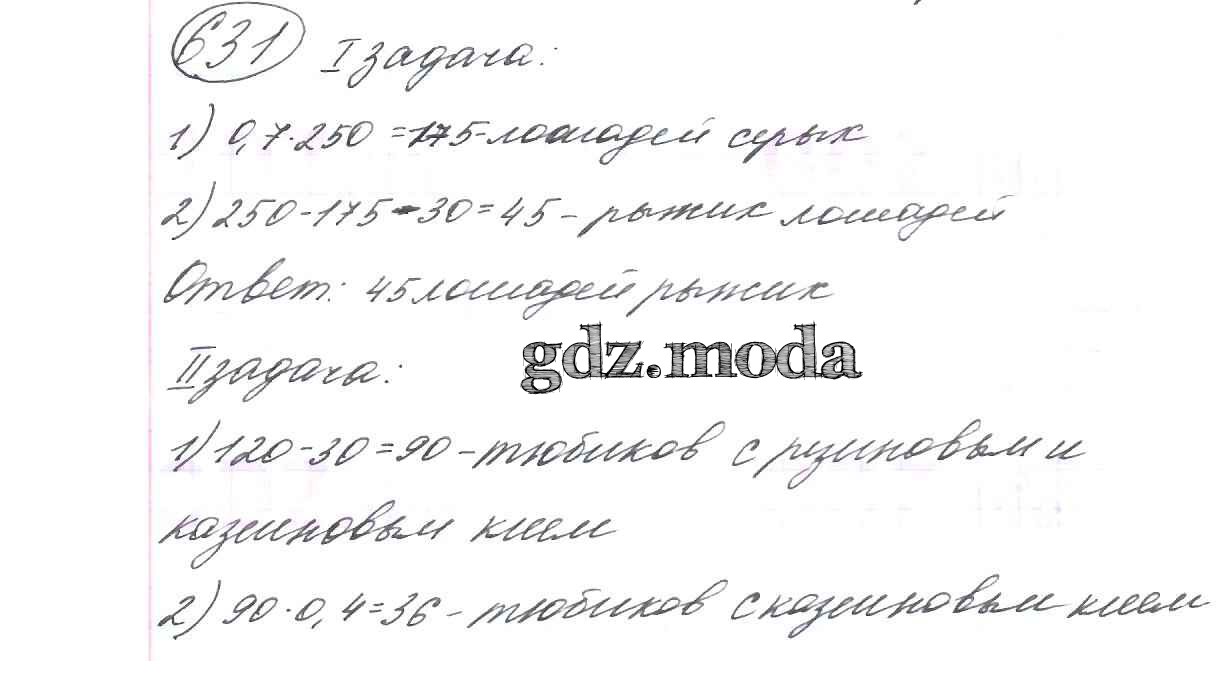 631 I задача:
1) 0,7·250=175-лошадей серых
2) 250-175-30=45-рыжих лошадей
Ответ: 45 лошадей рыжих
gdz.moda
II задача:
1) 120-30=90-тюбиков с резиновым и
казеиновым клеем
2) 90·0,4=36-тюбиков с казеиновым клеем